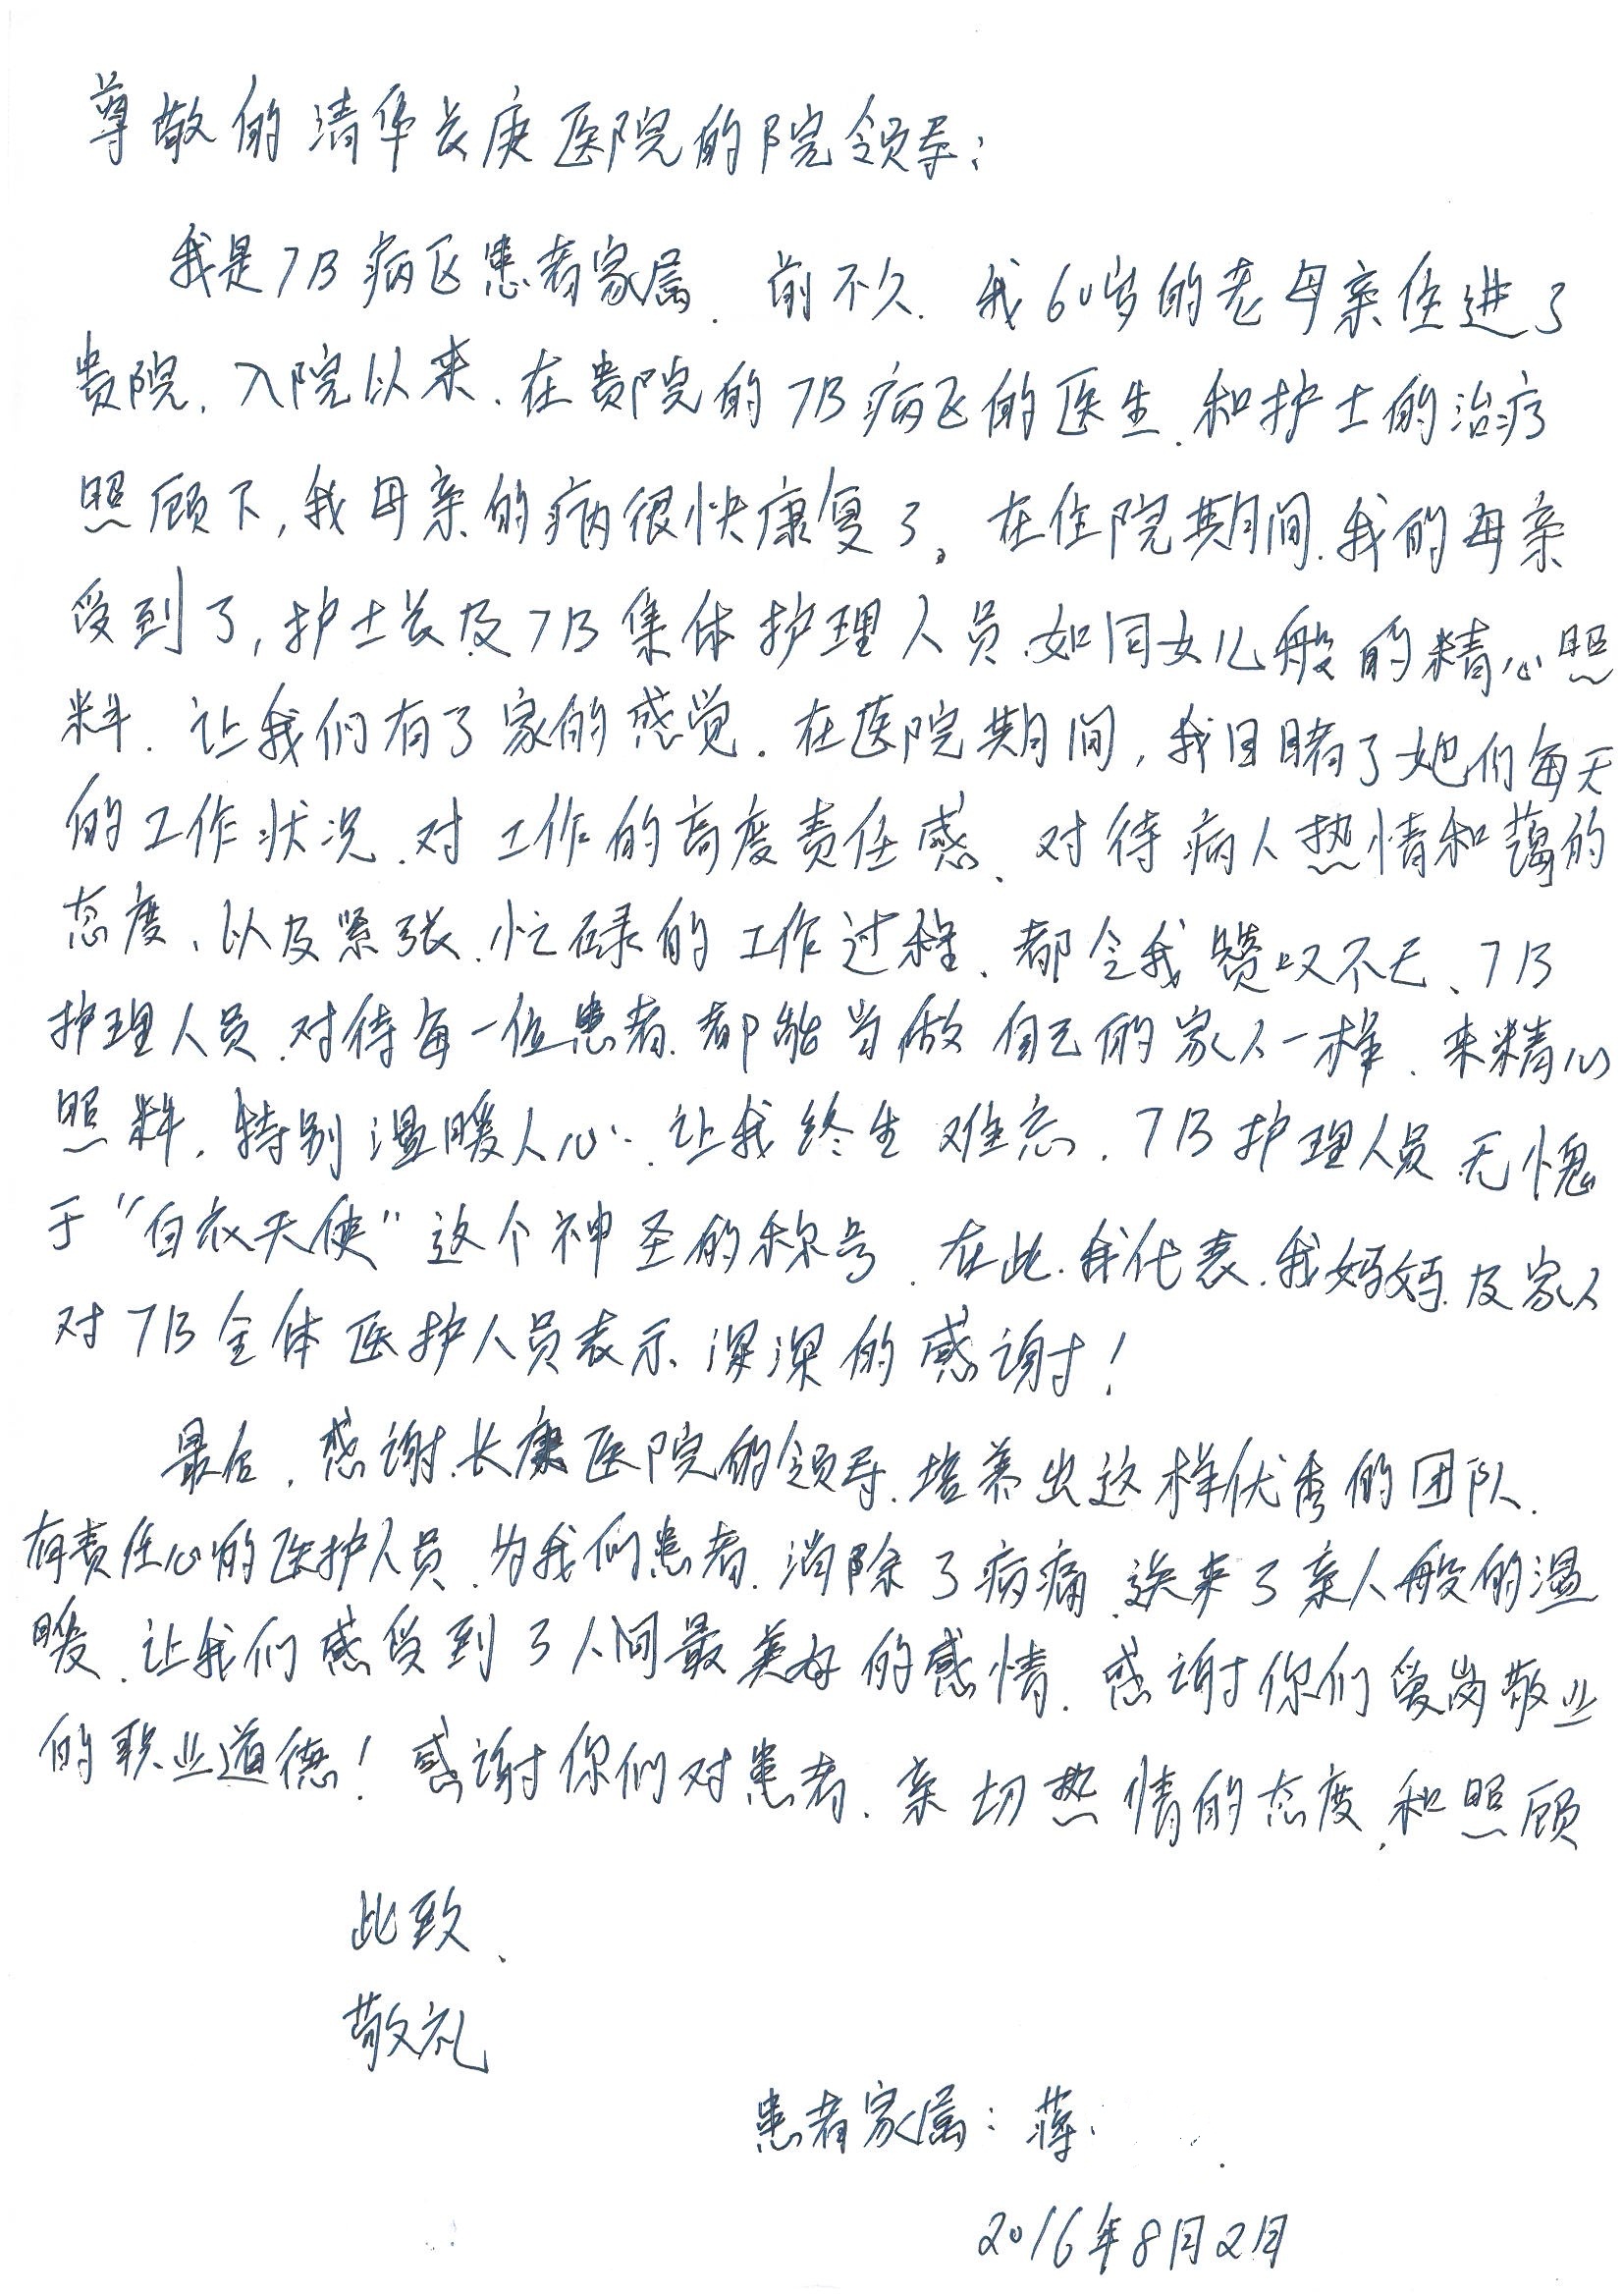 尊敬的清华长庚医院的院领导：
我是7B病区患者家属．前不久．我60岁的老母亲住进了
贵院．入院以来．在贵院的7B病区的医生．和护士的治疗
照顾下，我母亲的病很快康复了。在住院期间．我的母亲
受到了，护士长及7B集体护理人员．如同女儿般的精心照
料．让我们有了家的感觉．在医院期间，我目睹了她们每天
的工作状况．对工作的高度责任感、对待病人热情和蔼的
态度、以及紧张．忙碌的工作过程、都令我赞叹不已、7B
护理人员．对待每一位患者．都能当做自己的家人一样．来精心
照料．特别温暖人心．让我终生难忘．7B护理人员无愧
于"白衣天使"这个神圣的称号．在此．我代表．我妈妈．及家人
对7B全体医护人员表示、深深的感谢！
最后．感谢．长庚医院的领导．培养出这样优秀的团队．
有责任心的医护人员．为我们患者．消除了病痛．送来了亲人般的温
暖．让我们感受到了人间最美好的感情．感谢你们爱岗敬业
的职业道德！感谢你们对患者．亲切热情的态度．和照顾
此致、
敬礼
患者家属：蒋
2016年8月2日